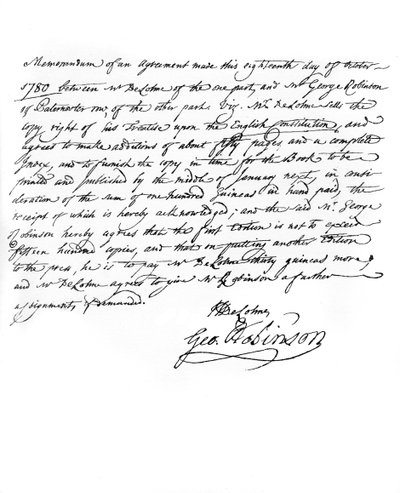 Memorandum of an agreement made this eighteenth day of October
1780 between Mr DeLolme of the one part, and Mr George Robinson
of Paternoster row, of the other part. Viz. Mr DeLolme sells the
copy right of his Treatise upon the English Constitution, and
agrees to make additions of about fifty pages and a complete
Index, and to furnish the copy in time for the Book to be
printed and published by the middle of January next, in consi
deration of the sum of one hundred Guineas in hand paid, the
receipt of which is hereby acknowledged; and the said Mr George
Robinson hereby agrees that the first Edition is not to exceed
fifteen hundred copies, and that on putting another Edition
to the press, he is to pay Mr DeLolme thirty guineas more;
and Mr DeLolme agrees to give Mr Robinson a further
assignment, if demanded.
DeLolme,
Geo. Robinson